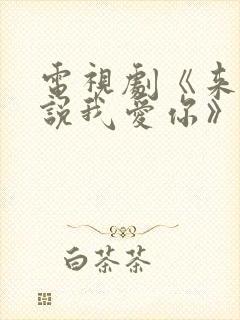 電視劇《来
說我愛你》
白茶茶